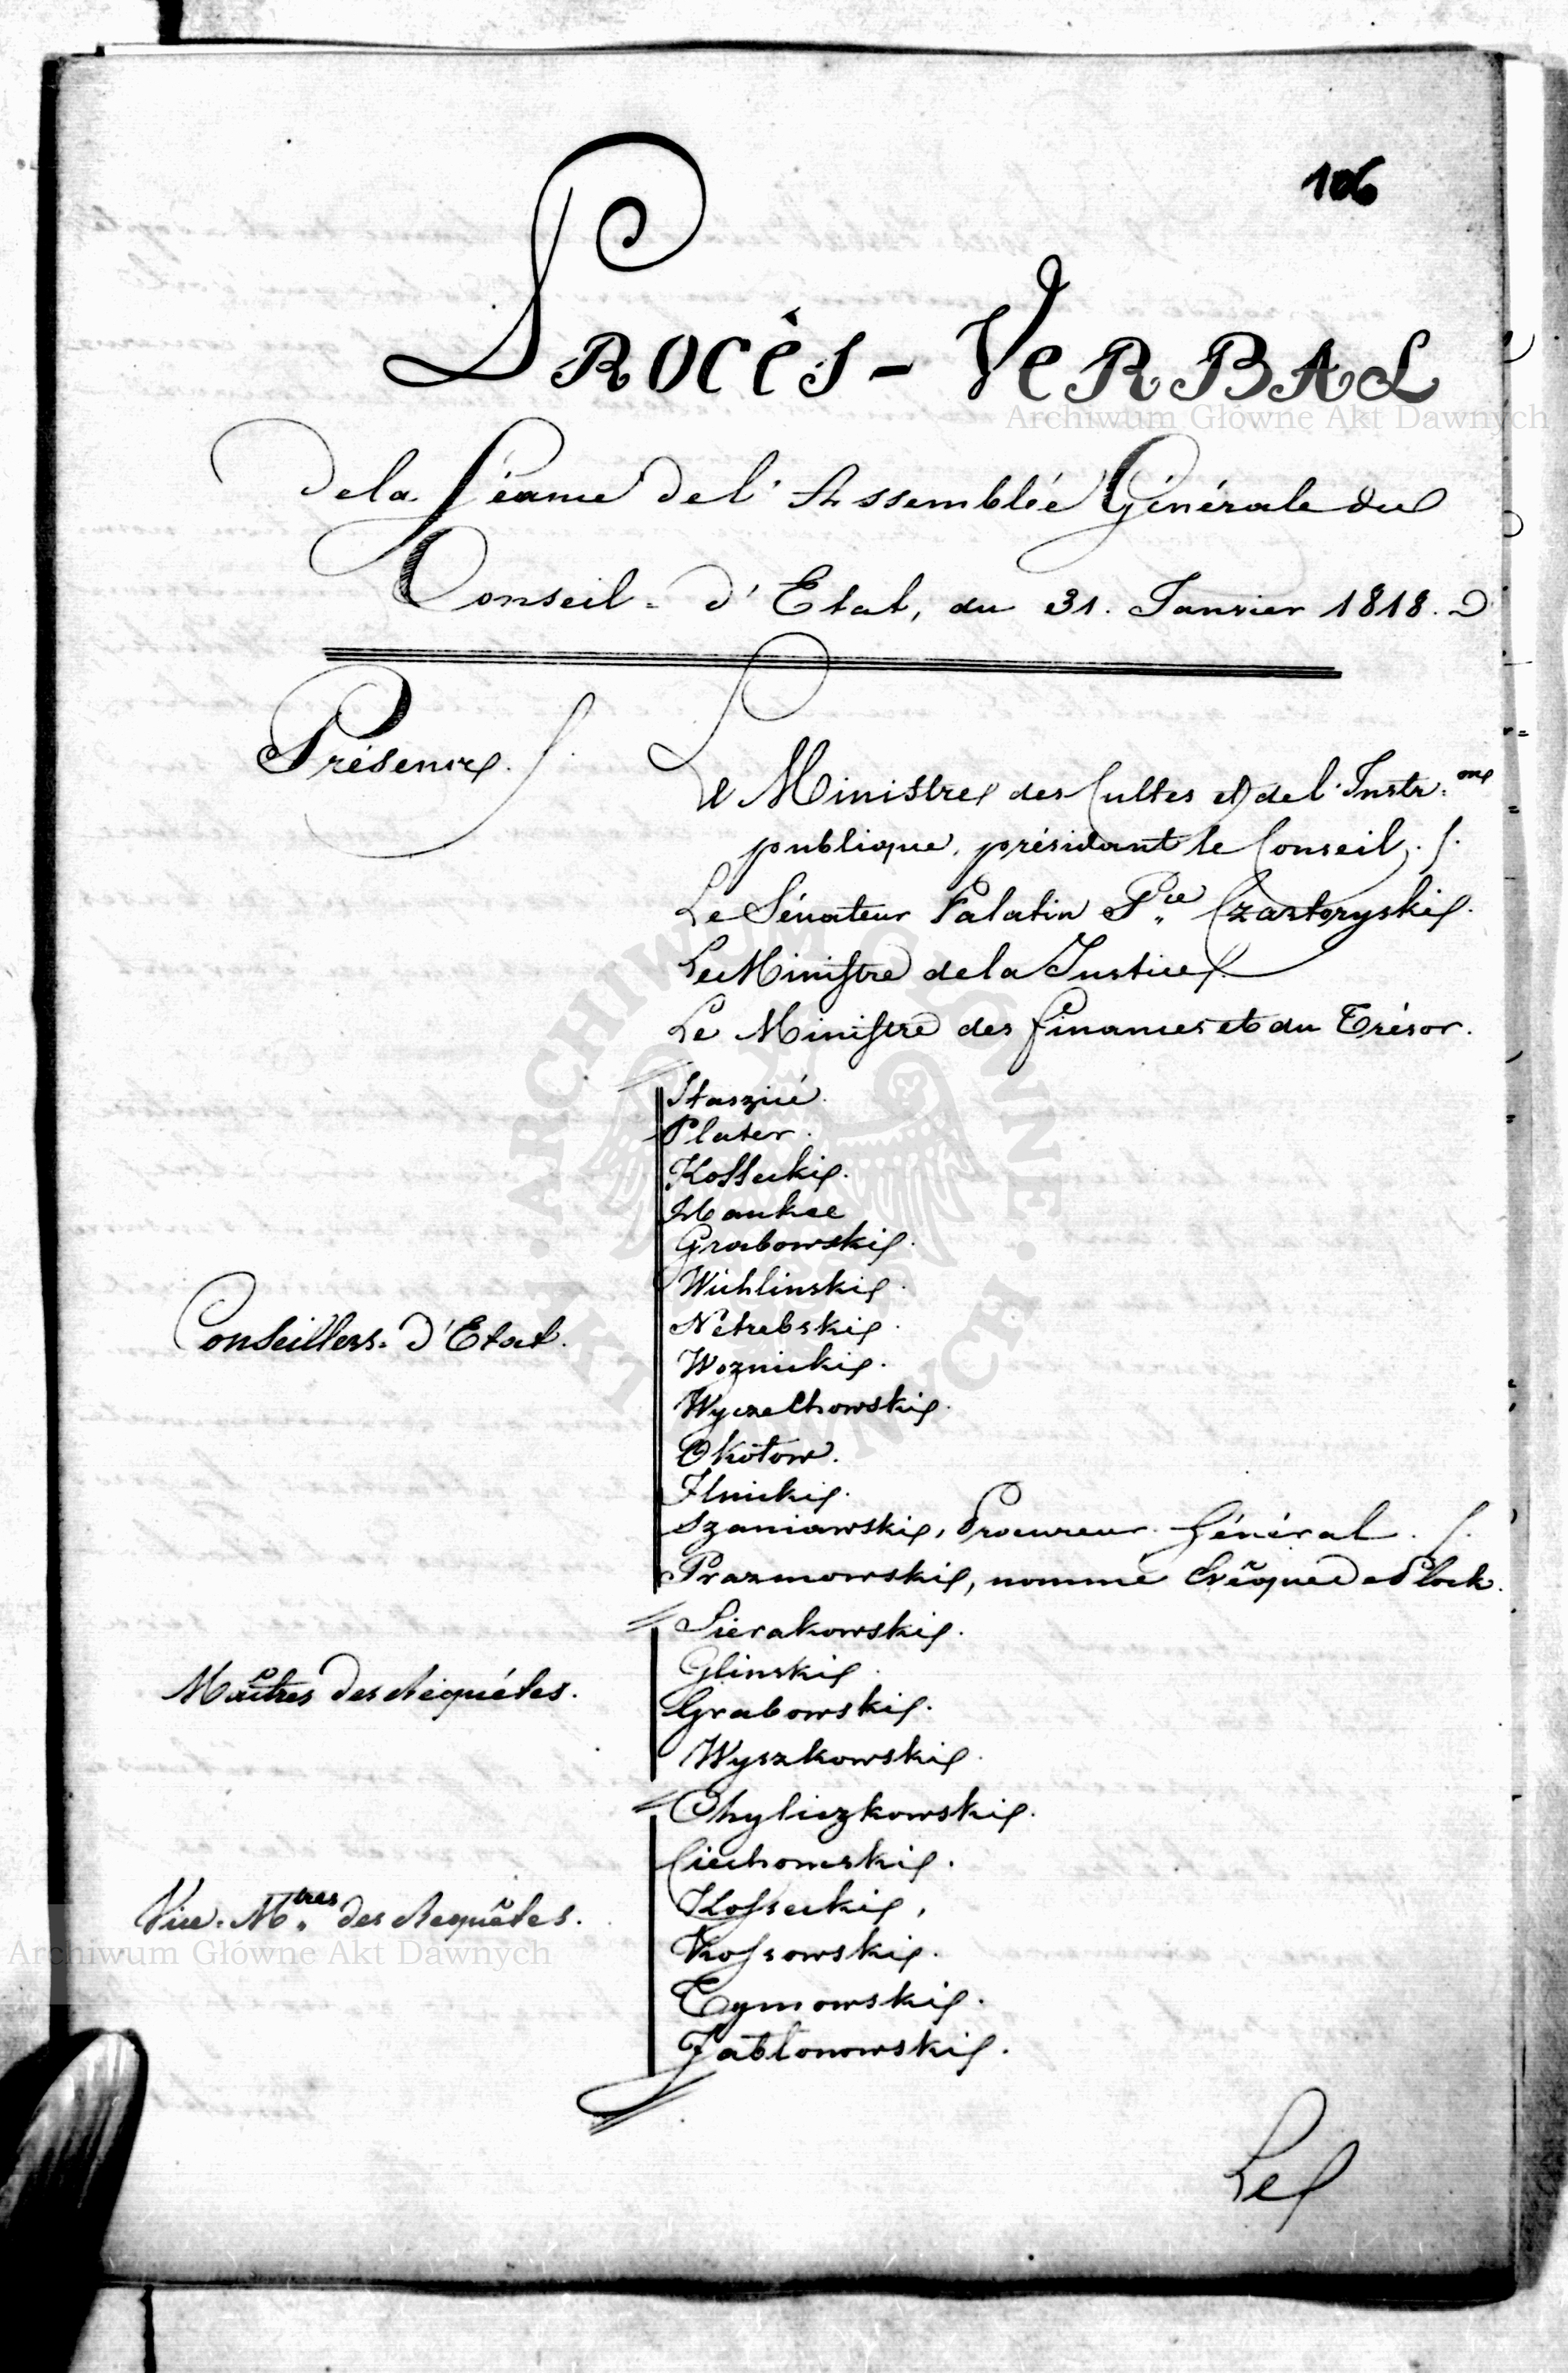 106
Procès-Verbal
de la Séance de l'Assemblée Générale du
Conseil d'Etat, du 31. Janvier 1818.
Présens.
Le Ministre des Cultes et de l'Instr.on
publique, présidant le Conseil.
Le Sénateur Palatin P.ce Czartoryski.
Le Ministre de la Justice
Le Ministre des finances et du Trésor.
Conseillers d'Etat.
Staszic.
Plater.
Kossecki.
Hauke
Grabowski.
Wichlinski.
Netrebski.
Woznicki.
Wyczechowski.
Okołow.
Ilnicki.
Szaniawski, Procureur Général.
Prazmowski, nommé Evêque de Plock.
Maîtres des Réquétes.
Sierakowski.
Glinski.
Grabowski.
Wyszkowski.
Vice-M.tres des Requêtes.
Chyliczkowski.
Ciechomski.
Kossecki,
Kossowski.
Tymowski.
Jabłonowski.
Le
Archiwum Główne Akt Dawnych
Archiwum Główne Akt Dawnych
ARCHIWUM GŁÓWNE AKT DAWNYCH